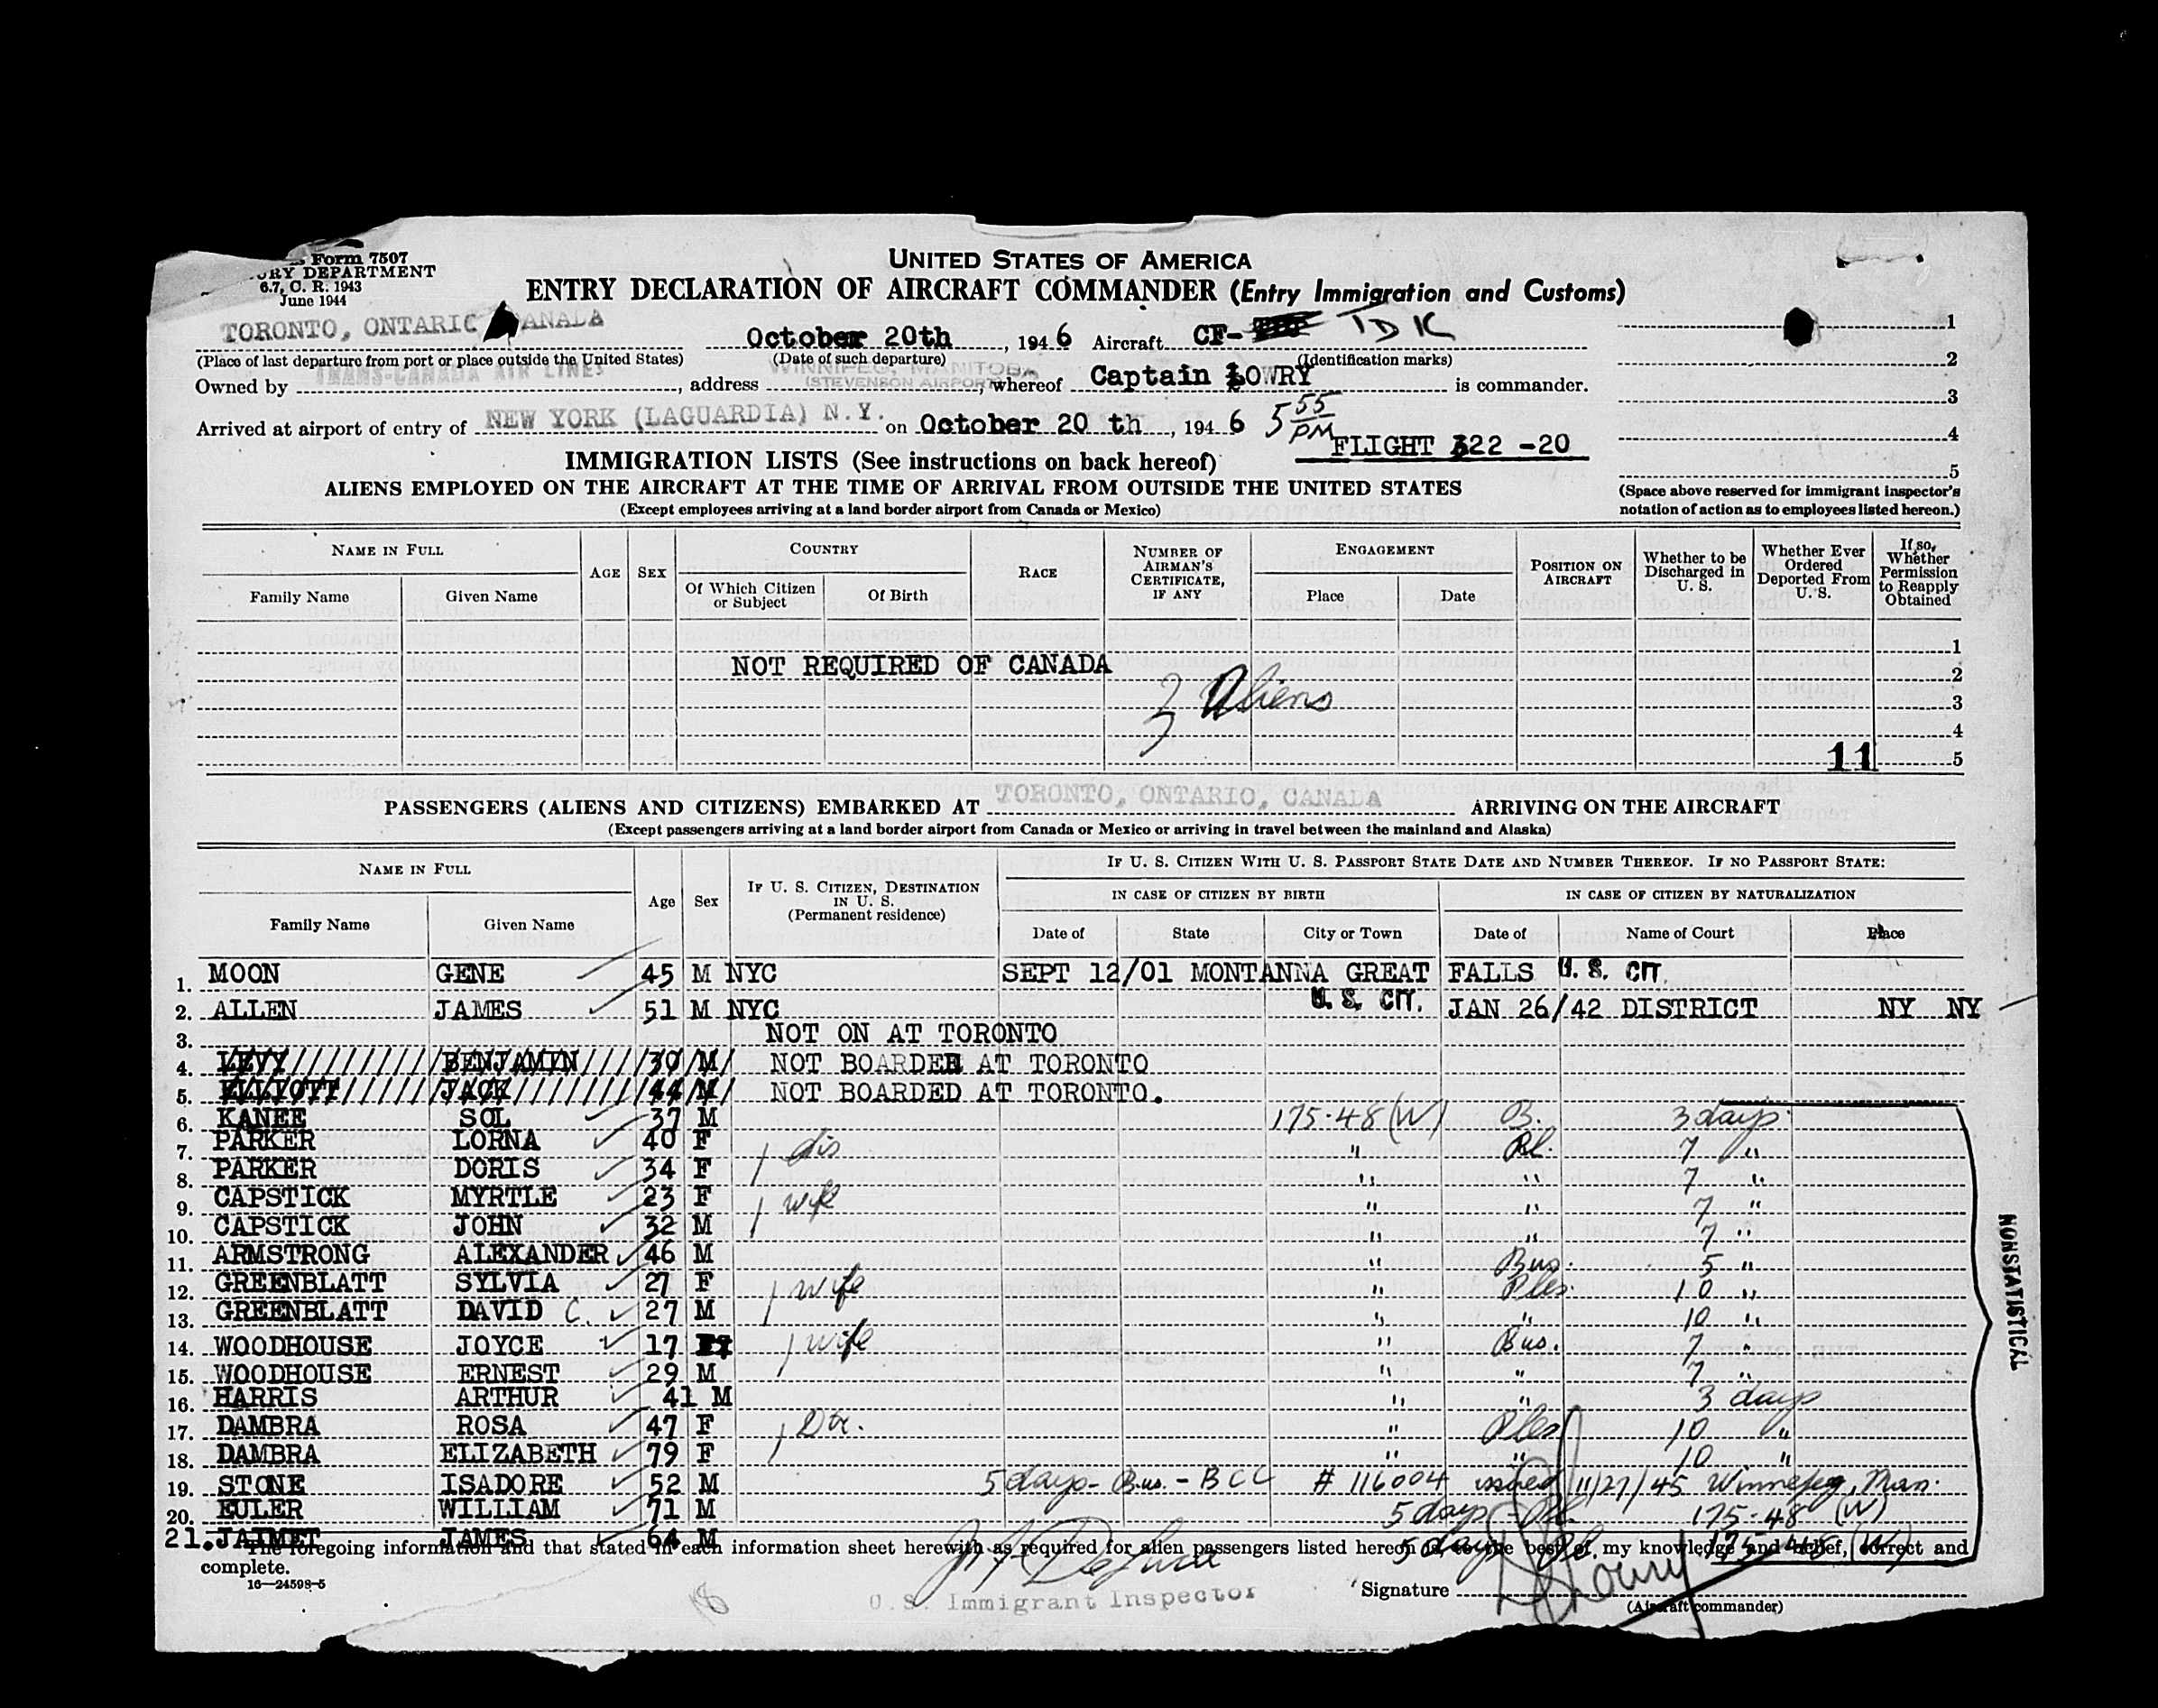 Form 7507
UNITED STATES OF AMERICA
DEPARTMENT
6.7, C. R. 1943
June 1944
ENTRY DECLARATION OF AIRCRAFT COMMANDER (Entry Immigration and Customs)
TORONTO, ONTARIO CANADA October 20th, 1946 Aircraft CF- TDK 1
(Place of last departure from port or place outside the United States) (Date of such departure) (Identification marks) 2
Owned by TRANS-CANADA AIR LINES, address WINNIPEG, MANITOBA (STEVENSON AIRPORT), whereof Captain LOWRY is commander. 3
Arrived at airport of entry of NEW YORK (LAGUARDIA) N.Y. on October 20 th, 1946 5 55 PM 4
FLIGHT 322 -20
IMMIGRATION LISTS (See instructions on back hereof) 5
ALIENS EMPLOYED ON THE AIRCRAFT AT THE TIME OF ARRIVAL FROM OUTSIDE THE UNITED STATES
(Except employees arriving at a land border airport from Canada or Mexico)
(Space above reserved for immigrant inspector's notation of action as to employees listed hereon.)
NAME IN FULL AGE SEX COUNTRY RACE NUMBER OF AIRMAN'S CERTIFICATE, IF ANY ENGAGEMENT POSITION ON AIRCRAFT Whether to be Discharged in U. S. Whether Ever Ordered Deported From U. S. If so, Whether Permission to Reapply Obtained
Family Name Given Name Of Which Citizen or Subject Of Birth Place Date
1
NOT REQUIRED OF CANADA 2
3 Aliens 3
4
11 5
PASSENGERS (ALIENS AND CITIZENS) EMBARKED AT TORONTO, ONTARIO, CANADA ARRIVING ON THE AIRCRAFT
(Except passengers arriving at a land border airport from Canada or Mexico or arriving in travel between the mainland and Alaska)
NAME IN FULL Age Sex IF U. S. CITIZEN, DESTINATION IN U. S. (Permanent residence) IF U. S. CITIZEN WITH U. S. PASSPORT STATE DATE AND NUMBER THEREOF. IF NO PASSPORT STATE:
IN CASE OF CITIZEN BY BIRTH IN CASE OF CITIZEN BY NATURALIZATION
Family Name Given Name Date of State City or Town Date of Name of Court Place
1. MOON GENE 45 M NYC SEPT 12/01 MONTANNA GREAT FALLS U. S. CIT.
2. ALLEN JAMES 51 M NYC U. S. CIT. JAN 26/42 DISTRICT NY NY
3. NOT ON AT TORONTO
4. LEVY BENJAMIN 30 M NOT BOARDED AT TORONTO
5. ELLIOTT JACK 44 M NOT BOARDED AT TORONTO.
6. KANEE SOL 37 M 175-48(W) B. 3 days
7. PARKER LORNA 40 F / dis " Pl. 7 "
8. PARKER DORIS 34 F " " 7 "
9. CAPSTICK MYRTLE 23 F / wife " " 7 "
10. CAPSTICK JOHN 32 M " " 7 "
11. ARMSTRONG ALEXANDER 46 M " Bus. 5 "
12. GREENBLATT SYLVIA 27 F / wife " Ples. 10 "
13. GREENBLATT DAVID C. 27 M " " 10 "
14. WOODHOUSE JOYCE 17 / wife " Bus. 7 "
15. WOODHOUSE ERNEST 29 M " " 7 "
16. HARRIS ARTHUR 41 M " " 3 days
17. DAMBRA ROSA 47 F / Dtr. " Ples 10 "
18. DAMBRA ELIZABETH 79 F " " 10 "
19. STONE ISADORE 52 M 5 days - Bus. - BCC # 116004 issued 11/27/45 Winnipeg, Man.
20. EULER WILLIAM 71 M 5 days Pl. 175-48 (W)
21. JAIMET JAMES 64 M 5 days Pl. 175-48 (W)
NONSTATISTICAL
The foregoing information and that stated in each information sheet herewith as required for alien passengers listed hereon is, to the best of my knowledge and belief, correct and complete.
16—24598-5
18
U.S. Immigrant Inspector
Signature Lowry
(Aircraft commander)